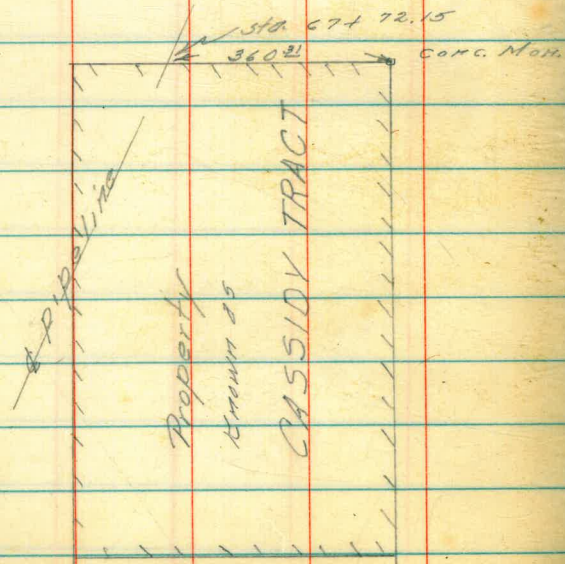 Sta. 67+72.15
360.31
Conc. Mon.
℄ pipeline
Property
Known as
CASSIDY TRACT